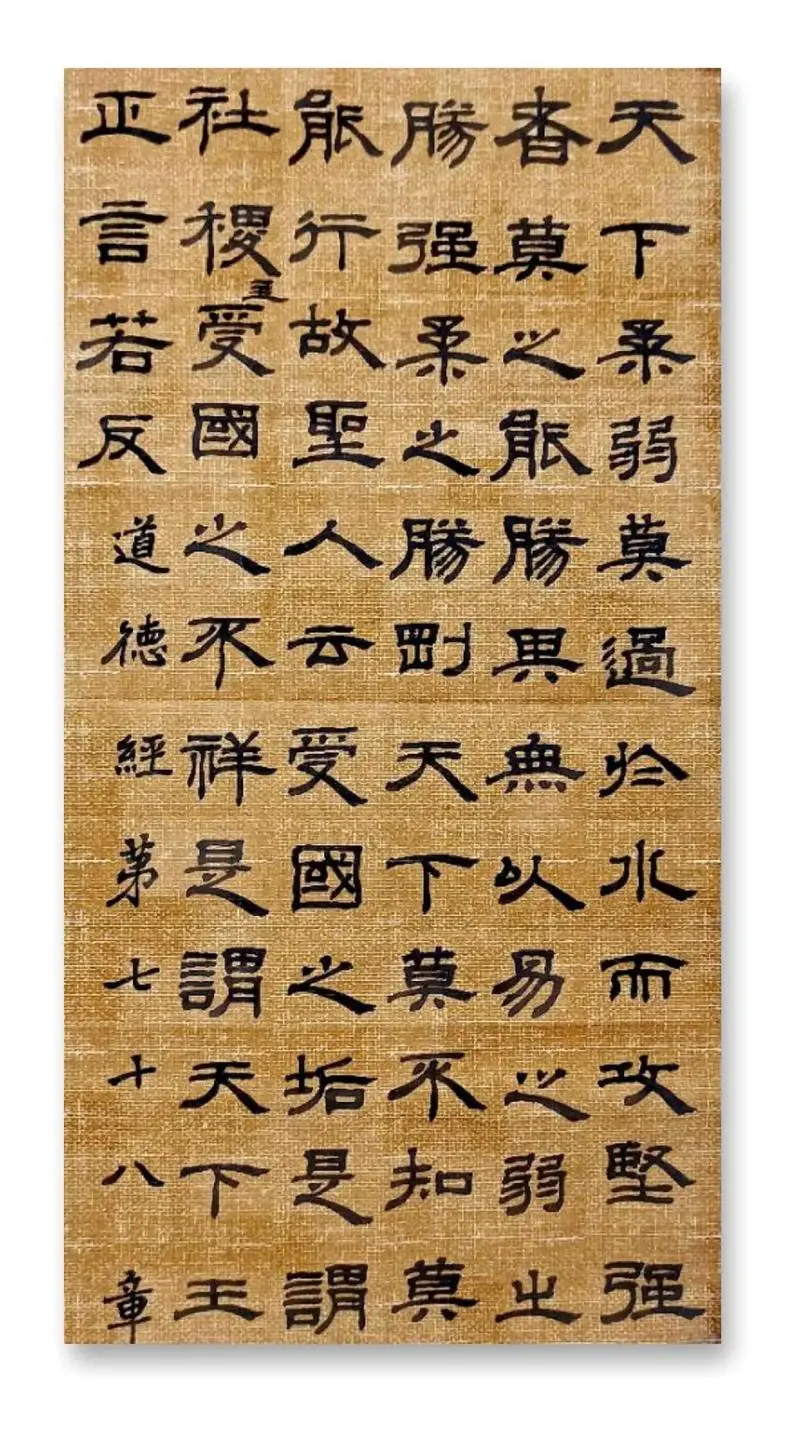 天下柔弱莫過於水而攻堅强
者莫之能勝其無以易之弱之
勝强柔之勝剛天下莫不知莫
能行故聖人云受國之垢是謂
社稷主受國之不祥是謂天下王
正言若反道德經第七十八章